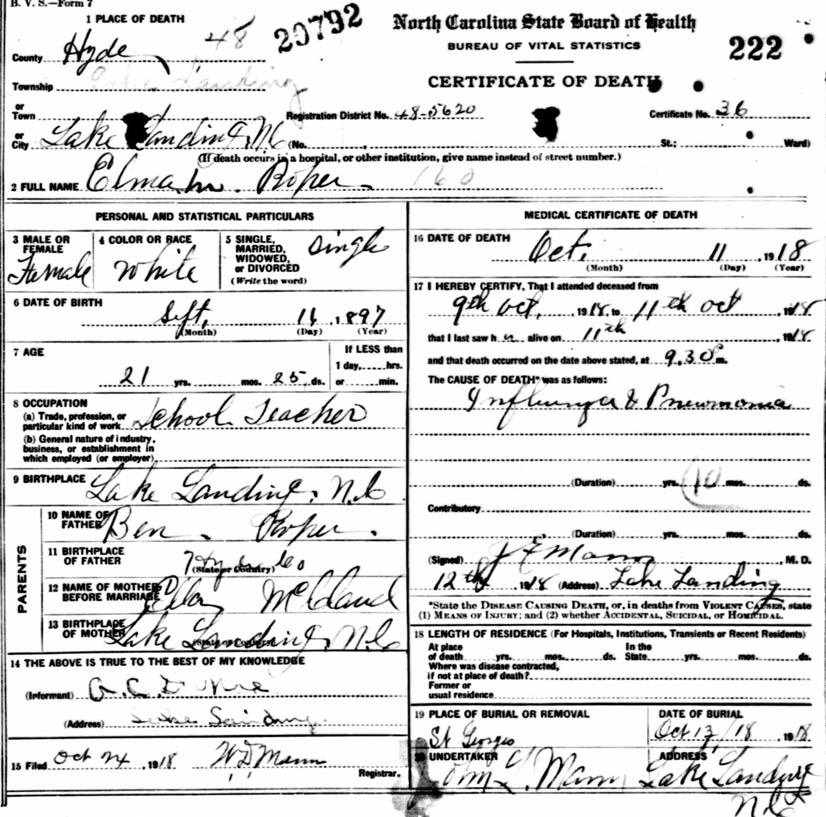 B. V. S.—Form 7
1 PLACE OF DEATH
48 20792
North Carolina State Board of Health
BUREAU OF VITAL STATISTICS
222
County Hyde
CERTIFICATE OF DEATH
Township Lake Landing
or Town
Registration District No. 48-5620 Certificate No. 36
or City Lake Landing, N.C. (No. St.; Ward)
(If death occurs in a hospital, or other institution, give name instead of street number.)
2 FULL NAME Roper 160
PERSONAL AND STATISTICAL PARTICULARS
3 MALE OR FEMALE Female
4 COLOR OR RACE White
5 SINGLE, MARRIED, WIDOWED, OR DIVORCED (Write the word) Single
6 DATE OF BIRTH
Sept. 16, 1897
(Month) (Day) (Year)
7 AGE
If LESS than
1 day, hrs.
21 yrs. mos. 25 ds. or min.
8 OCCUPATION
(a) Trade, profession, or particular kind of work School Teacher
(b) General nature of industry,
business, or establishment in
which employed (or employer)
9 BIRTHPLACE Lake Landing, N.C.
PARENTS
10 NAME OF FATHER Ben Roper.
11 BIRTHPLACE OF FATHER Hyde Co
(State or Country)
12 NAME OF MOTHER BEFORE MARRIAGE
13 BIRTHPLACE OF MOTHER Lake Landing, N.C.
(State or Country)
14 THE ABOVE IS TRUE TO THE BEST OF MY KNOWLEDGE
(Informant)
(Address) Lake Landing
15 Filed Oct 24, 1918 W.D. Mann
Registrar.
MEDICAL CERTIFICATE OF DEATH
16 DATE OF DEATH
Oct. 11 1918
(Month) (Day) (Year)
17 I HEREBY CERTIFY, That I attended deceased from
9th Oct, 1918, to 11th Oct, 1918
that I last saw h alive on 11th, 1918
and that death occurred on the date above stated, at 9.30 m.
The CAUSE OF DEATH* was as follows:
Influenza & Pneumonia
(Duration) yrs. 10 mos. ds.
Contributory
(Duration) yrs. mos. ds.
(Signed) J E Mann, M. D.
12th 1918 (Address) Lake Landing
*State the DISEASE CAUSING DEATH, or, in deaths from VIOLENT CAUSES, state
(1) MEANS OF INJURY; and (2) whether ACCIDENTAL, SUICIDAL, or HOMICIDAL.
18 LENGTH OF RESIDENCE (For Hospitals, Institutions, Transients or Recent Residents)
At place of death yrs. mos. ds. In the State yrs. mos. ds.
Where was disease contracted,
if not at place of death?
Former or
usual residence
19 PLACE OF BURIAL OR REMOVAL DATE OF BURIAL
St Georges Oct 13/18 1918
20 UNDERTAKER ADDRESS
Mann Lake Landing
N.C.